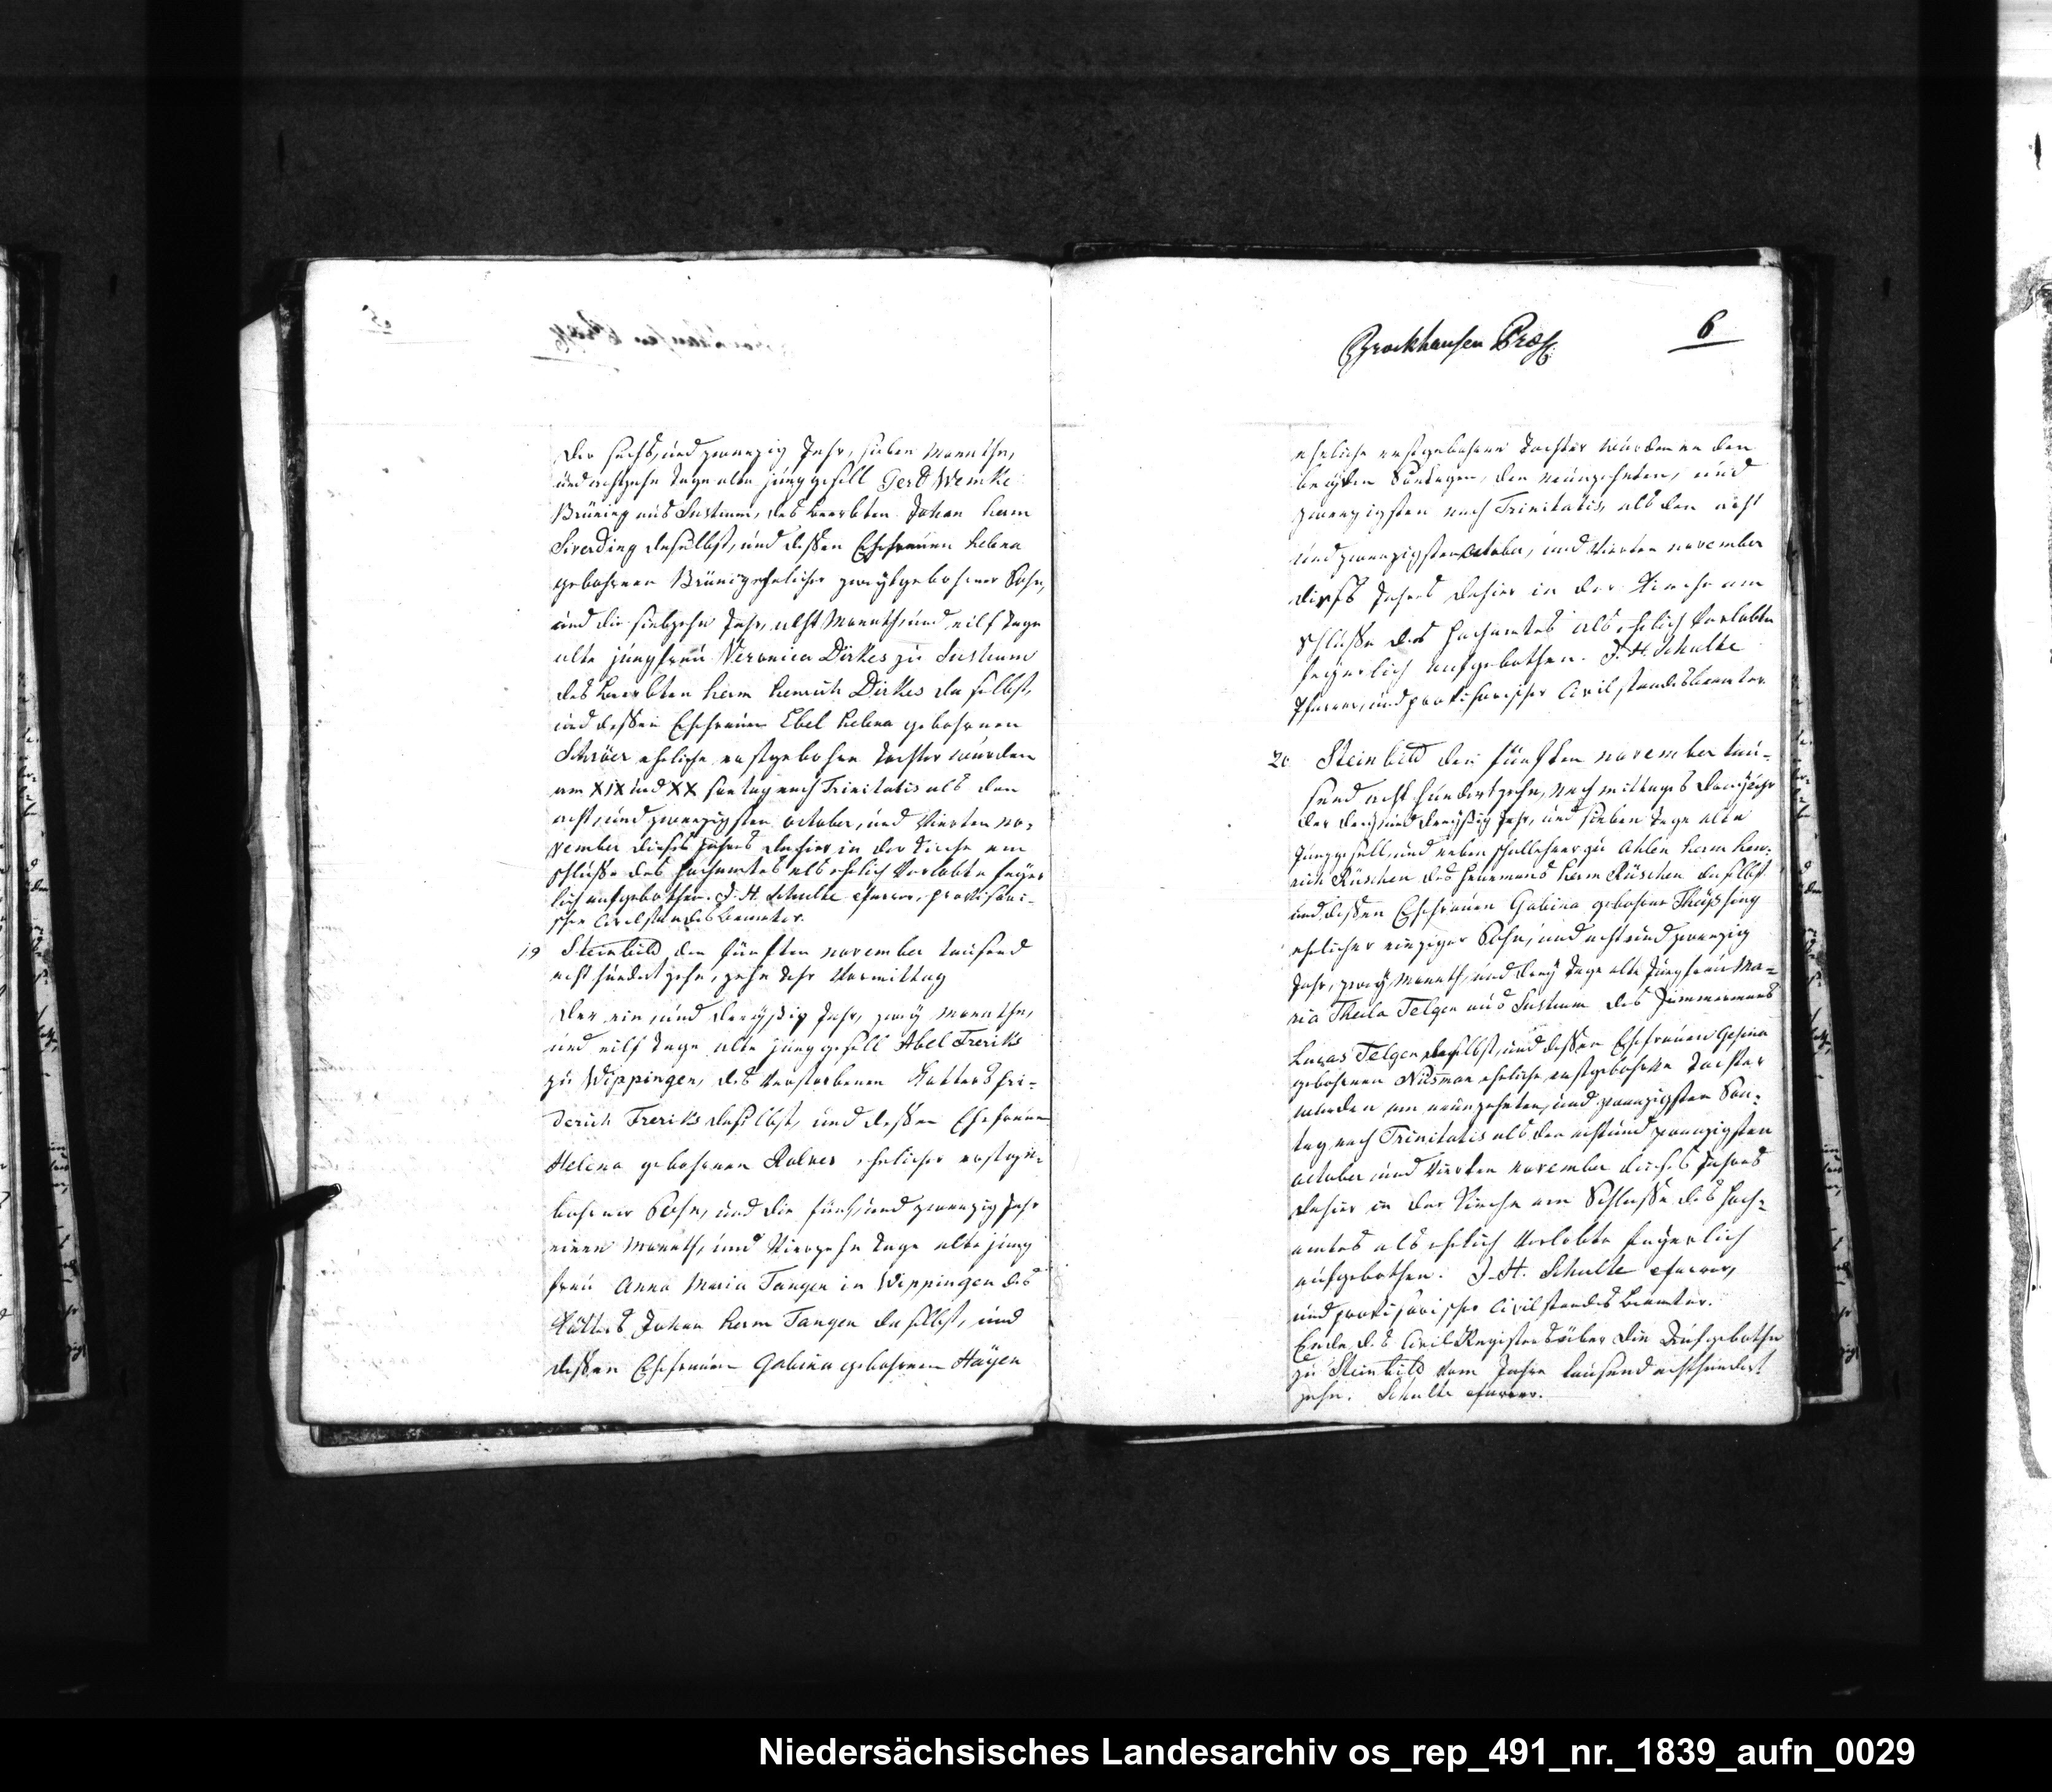 der sechs und zwanzig Jahr, sieben Monathe,
und achtzehn Tage alte junggesell Gerd Wemke
Brüning aus Sustrum, des Beerbten Johan herm
Siverding daselbst, und dessen Ehefrauen helena
gebohrnen Brüning ehelicher zweytgebohrner Sohn,
und die siebzehn Jahr, acht Monath, und eilf Tage
alte jungfrau Veronica Dirkes zu Sustrum
des Beerbten herm henrich Dirkes daselbst,
und dessen Ehefrauen Ebel helena gebohrnen
Schröer eheliche erstgebohrne tochter wurden
am XIX und XX sontag nach Trinitatis als den
acht und zwanzigsten october, und Vierten no=
vember dieses Jahres dahier in der Kirche am
schlusse des hochamtes als ehelich Verlobte feyer
lich aufgebothen. J. H. Schulte Pfarrer, provisori=
scher Civilstandesbeamter.
19 Steinbild den fünften november tausend
acht hundert zehn, zehn Uhr Vormittag
der ein und dreyßig Jahr, zwey Monathe,
und eilf Tage alte junggesell Abel Freriks
zu Wippingen, des Verstorbenen Kötters fri=
derich Freriks daselbst, und dessen Ehefrauen
Helena gebohrnen Rolves ehelicher erstge=
bohrner Sohn, und die fünf und zwanzig Jahr
einen Monath, und Vierzehn Tage alte jung
frau Anna Maria Tangen in Wippingen des
Kötters Johan herm Tangen daselbst, und
dessen Ehefrauen Gabina gebohrnen Haÿen
Brockhausen Präs.
6
eheliche erstgebohrne tochter wurden an den
beyden Sontagen, den neunzehnten, und
zwanzigsten nach Trinitatis, als den acht
und zwanzigsten october, und Vierten november
dieses Jahres dahier in der Kirche am
schlusse des hochamtes als ehelich Verlobte
feyerlich aufgebothen. J. H. Schulte
Pfarrer, und provisorischer Civilstandesbeamter
20 Steinbild den fünften november tau=
send acht hundert zehn, nach mittages drey Uhr
der drey und dreyßig Jahr, und sieben Tage alte
Junggesell, und neben schullehrer zu Ahlen herm hen=
rich Rüschen des heuermans herm Rüschen daselbst
und dessen Ehefrauen Gabina gebohrne
ehelicher einziger Sohn, und acht und zwanzig
Jahr, zwey Monath, und drey Tage alte Jungfrau Ma=
ria Theila Telgen aus Sustrum des Zimmermans
Lucas Telgen daselbst, und dessen Ehefrauen Gesina
gebohrnen Nüsman eheliche erstgebohrne Tochter
wurden am neunzehnten, und zwanzigsten Son=
tag nach Trinitatis als den acht und zwanzigsten
october und Vierten november dieses Jahres
dahier in der Kirche am Schlusse des hoch=
amtes als ehelich Verlobte feyerlich
aufgebothen. J. H. Schulte Pfarrer,
und provisorischer Civilstandes Beamter.
Ende des Civil Registers über die Aufgebothe
zu Steinbild vom Jahre tausend achthundert
zehn. Schulte Pfarrer.
Niedersächsisches Landesarchiv os_rep_491_nr._1839_aufn_0029